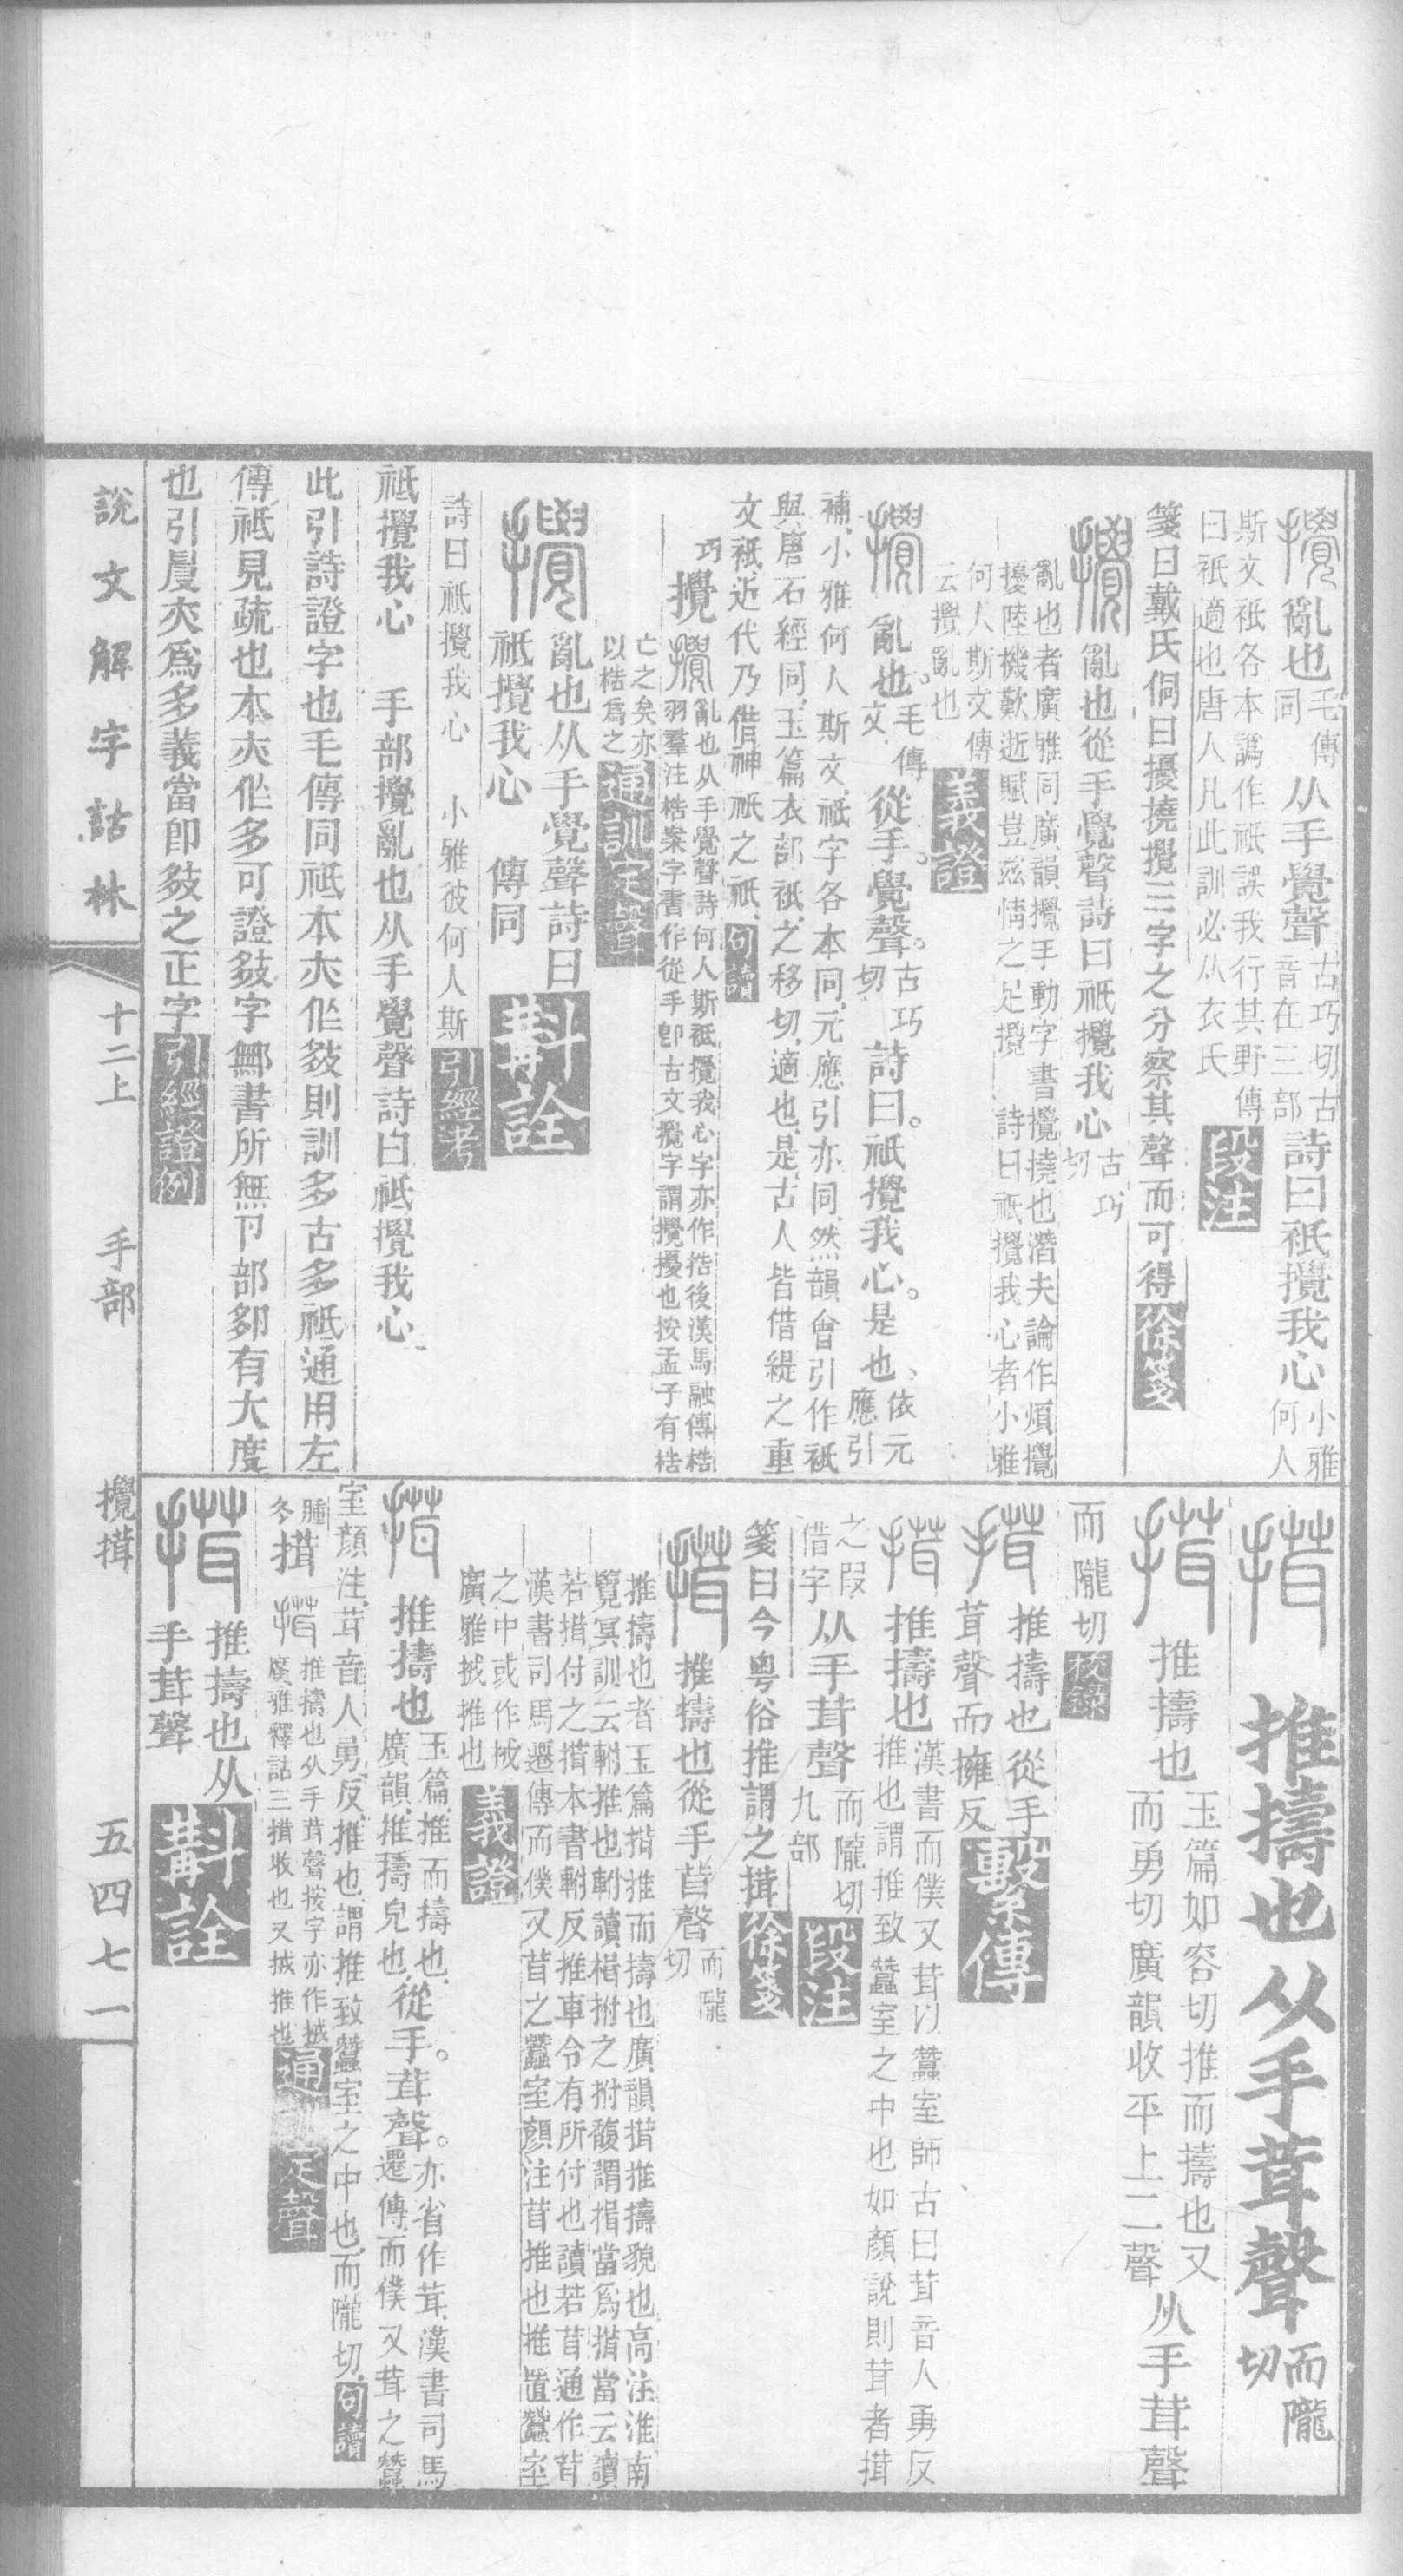 攪亂也毛傳同从手覺聲古巧切古音在三部詩曰祇攪我心小雅何人
斯文祇各本譌作祇誤我行其野傳曰祇適也唐人凡此訓必从衣氏段注
箋曰戴氏侗曰擾撓攪三字之分察其聲而可得徐箋
攪亂也從手覺聲詩曰祇攪我心古巧切
亂也者廣雅同廣韻攪手動字書攪撓也潛夫論作煩攪
擾陸機歎逝賦豈茲情之足攪 詩曰祇攪我心者小雅
何人斯文傳云攪亂也義證
攪亂也。毛傳文從手。覺聲。古巧切詩曰。祇攪我心。是也、依元應引
補、小雅何人斯文、祇字各本同、元應引亦同、然韻會引作祇
與唐石經同、玉篇衣部祇、之移切、適也、是古人皆借緹之重
文祇、近代乃借神祇之祇、句讀
巧攪攪亂也从手覺聲詩何人斯祇攪我心字亦作捁後漢馬融傳梏
羽羣注梏案字書作從手卽古文攪字謂攪擾也按孟子有梏
亡之矣亦以梏爲之通訓定聲
攪亂也从手覺聲詩曰祇攪我心 傳同斠詮
詩曰祇攪我心 小雅彼何人斯引經考
祇攪我心 手部攪亂也从手覺聲詩曰祇攪我心
此引詩證字也毛傳同祇本夾作𢻫則訓多古多祇通用左
傳祇見疏也本夾作多可證𢻫字鄦書所無卩部卶有大度
也引㞋夾爲多義當卽𢻫之正字引經證例
搑 推擣也从手茸聲而隴切
搑推擣也玉篇如容切推而擣也又而勇切廣韻收平上二聲从手茸聲
而隴切校錄
搑推擣也從手茸聲而擁反繫傳
搑推擣也漢書而僕又茸以蠶室師古曰茸音人勇反推也謂推致蠶室之中也如顏說則茸者搑
之叚借字从手茸聲而隴切九部段注
箋曰今粵俗推謂之搑徐箋
搑推擣也從手茸聲而隴切
推擣也者玉篇搑推而擣也廣韻搑推擣貌也高注淮南
覽冥訓云軵推也軵讀楫拊之拊馥謂揖當爲搑當云讀
若搑付之搑本書軵反推車令有所付也讀若茸通作茸
漢書司馬遷傳而僕又茸之蠶室顏注茸推也推置蠶室
之中或作㧡廣雅㧡推也義證
搑推擣也玉篇、推而擣也、廣韻、推擣皃也、從手。茸聲。亦省作茸、漢書司馬遷傳、而僕又茸之蠶
室顏注、茸音人勇反、推也、謂推致蠶室之中也、而隴切、句讀
腫冬搑搑推擣也从手茸聲按字亦作㧡廣雅釋詁三搑收也又㧡推也通訓定聲
搑推擣也从手茸聲斠詮
說文解字詁林 十二上 手部 攪搑 五四七一